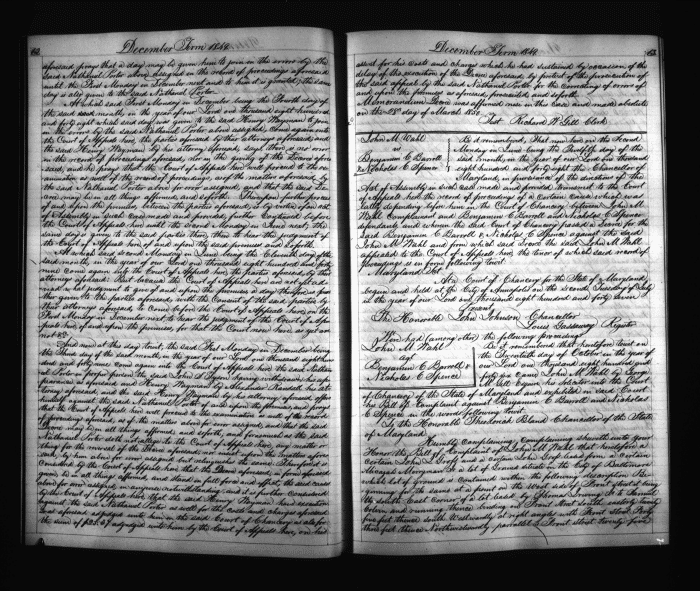 62
December Term 1849
aforesaid prays that a day may be given him to join in the errors by the
said Nathaniel Porter above assigned in the record of proceedings aforesaid
until the First Monday in December next and to him it is granted, the same
day is also given to the said Nathaniel Porter
At which said First Monday in December being the Fourth day of
the said month, in the year of our Lord one thousand eight hundred
and forty eight which day was given to the said Henry Wayman to join
in the errors by the said Nathaniel Porter above assigned, come again into
the Court of Appeals here, the parties aforesaid by their attorneys aforesaid and
the said Henry Wayman by his attorney aforesaid says there is no error
in the record of proceedings aforesaid, nor in the giving of the Decree afore
said, and he prays that the Court of Appeals here will proceed to the ex-
amination as well of the record of proceedings as of the matters aforesaid by
the said Nathaniel Porter above for error assigned, and that the said De
cree may be in all things affirmed and so forth.
of Assembly in such case made and provided, further continued before
the Court of Appeals here until the second Monday in June next, the
same day is given to the said parties there, then to hear the judgment of
the Court of Appeals here of and upon the said premises and so forth.
At which said second Monday in June being the Eleventh day of the
said month, in the year of our Lord one thousand eight hundred and forty
nine come again into the Court of Appeals here, the parties aforesaid by their
attorneys aforesaid. But because the Court of Appeals here are not yet ad-
vised what judgment to give of and upon the premises a day therefore is fur
ther given to the parties aforesaid, with the consent of the said parties by
their attorneys aforesaid, to come before the Court of Appeals here, on the
First Monday in December next to hear the judgment of the Court of Ap-
peals here, of and upon the premises, for that the Court now here as yet are
not &c.
And now at this day to wit, the said First Monday in December being
the Third day of the said month, in the year of our Lord one thousand eight hun
dred and forty nine come again into the Court of Appeals here, the said Nathan
Decree may in all things affirmed and so forth, and forasmuch as the said
Nathaniel Porter doth not allege to the Court of Appeals here, any matter or
thing
Considered by the Court of Appeals here that the Decree aforesaid, in form aforesaid
given be in all things affirmed, and stand in full force and effect, the said causes
above for error assigned in any wise notwithstanding, and it is further considered
by the Court of Appeals here that the said Henry Wayman have execution
against the said Nathaniel Porter as well for the costs and charges aforesaid
the sum of $35.67 adjudged unto him by the Court of Appeals here, on his
63
December Term 1849
assent for his costs and charges which he had sustained by occasion of the
delay of the execution of the Decree aforesaid by pretext of the prosecution of
the said appeal by the said Nathaniel Porter for the correcting of errors of
and upon the premises aforesaid, prosecuted and so forth.
Memorandum Decree was affirmed nisi in this case and made absolute
on the 28th day of March 1850
Test Richard W. Gill Clerk
John M. Wahl
vs
Benjamin C. Barroll
& Nicholas C. Spence
Be it remembered, that now here on the second
Monday in June being the Twelfth day of the
said month, in the year of our Lord one thousand
eight hundred and forty eight the Chancellor of
Maryland, in pursuance of the directions of the
Act of Assembly in such case made and provided transmits to the Court
of Appeals here the record of proceedings of a certain Cause which was
lately depending before him in the Court of Chancery between John M.
Wahl Complainant and Benjamin C. Barroll and Nicholas C. Spence
defendants, and wherein the said Court of Chancery passed a Decree for the
said Benjamin C. Barroll & Nicholas C. Spence against the said
John M. Wahl and from which said Decree the said John M. Wahl
appealed to the Court of Appeals here, the tenor of which said record of
proceedings is in form following towit.
Maryland Sct
At a Court of Chancery for the State of Maryland
begun and held at the City of Annapolis on the second Tuesday of July
in the year of our Lord one thousand eight hundred and forty seven
Present
The Honorable John Johnson Chancellor
Louis Gassaway Register
Were had (among other) the following proceedings.
John M. Wahl
agt
Benjamin C. Barroll &
Nicholas C. Spence
Be it remembered that heretofore towit on
the Twentieth day of October in the year of
our Lord one thousand eight hundred forty
M. Gill Esquire his solicitor into the Court
of Chancery of the State of Maryland and exhibited in said Court
his Bill of Complaint against Benjamin C. Barroll and Nicholas
C. Spence in the words following towit.
To the Honorable Theodorick Bland Chancellor of the State
of Maryland
Humbly Complaining Complaining sheweth unto your
Honor the Bill of Complaint of John M. Wahl that heretofore a
certain John
for a lot of Ground situate in the City of Baltimore
which lot of Ground is contained within the following description, Be
ginning for the same at a point on the west side of Front street being
the South East Corner of a lot leased by Thomas
five feet thence South Westwardly at right angles with Front Street Forty
three feet thence Northwestwardly parallel to Front street twenty five